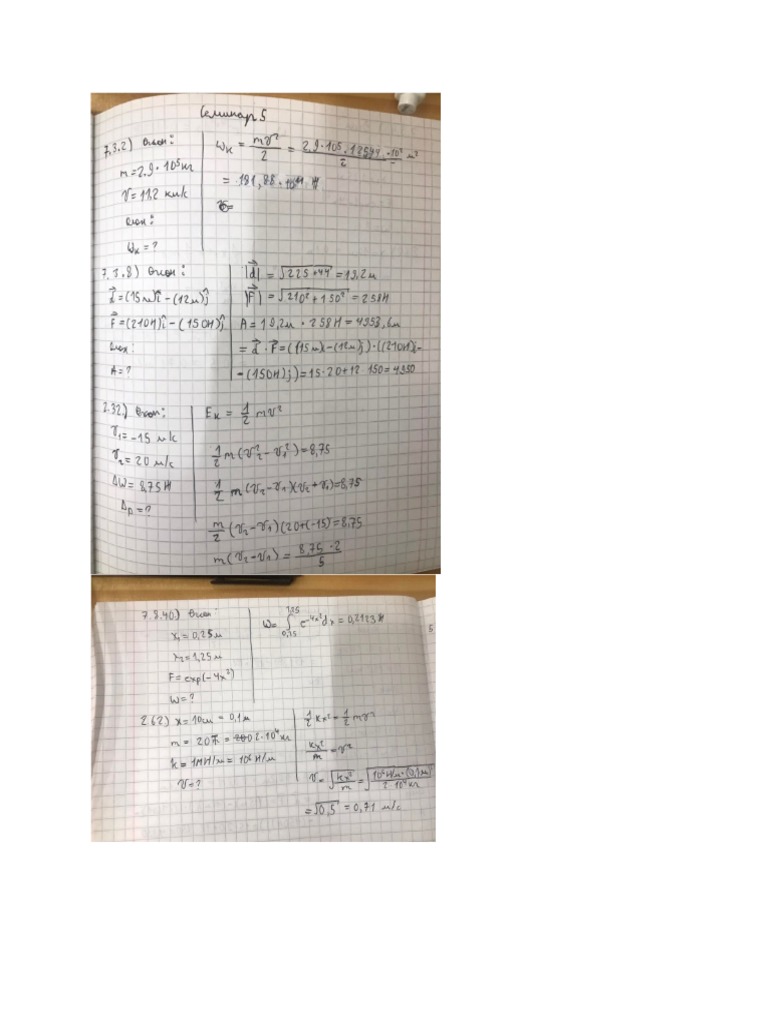 Семинар 5
7.3.2)
m=2.9·10⁵кг
v=11.2 км/с
Wₖ=?
Wₖ = mv²/2 = 2.9·10⁵·12544·10²/2
= 181,88·10¹¹
7.3.8)
d⃗=(15м)î-(12м)ĵ
F⃗=(210Н)î-(150Н)ĵ
A=?
|d⃗| = √225+44 = 19,2м
|F⃗| = √210²+150² = 258Н
A=19,2м · 258Н = 4953,6м
= d⃗·F⃗=(15м)i-(12м)j)·((210Н)i-
-(150Н)j)=15·20+12·150=4950
2.32)
v₁=-15 м/с
v₂=20 м/с
ΔW=8,75
Δp=?
Eₖ = 1/2 mv²
1/2 m(v₂²-v₁²)=8,75
1/2 m(v₂-v₁)(v₂+v₁)=8,75
m/2 (v₂-v₁)(20+(-15)=8,75
m(v₂-v₁) = 8,75·2/5
7.3.40)
x₁=0,25м
x₂=1,25м
F=exp(-4x²)
W=?
W= ∫ 0,25 1,25 e⁻⁴ˣ²dx = 0,2123
2.62) x=10см=0,1м
m = 20т = 2·10⁴кг
k=1МН/м=10⁶Н/м
v=?
1/2 kx²=1/2 mv²
kx²/m = v²
v=√kx²/m = √10⁶Н/м·(0,1м)²/2·10⁴кг
=√0,5 = 0,71 м/с
5